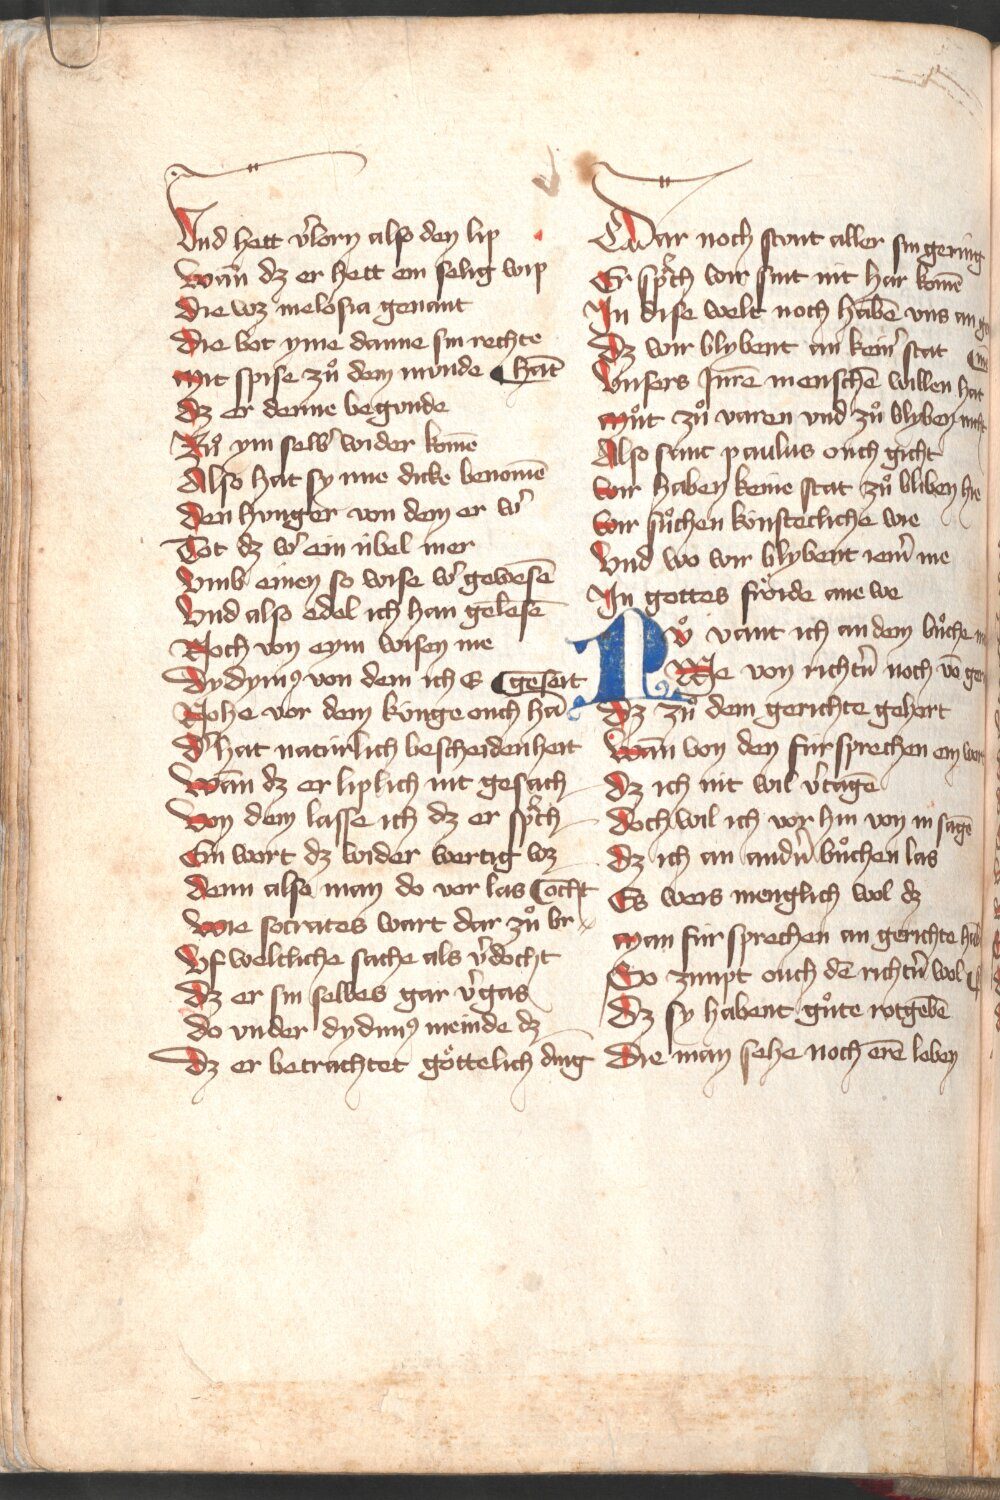 Vnd hett v͛lorn also den lip
Wan̄ dz er hett ein selig wip
Die wz melosia genant
Die bot yme danne sin rechte
Mit spise zů dem munde hāt
Dz er denne begonde
Zů ym selb͛ wider komē
Also hat sy ime dicke benomē
Den hunger von dem er w͛
Tot dz w͛ ein übel mer
Vmb einen so wise w͛ gewesē
Vnd also edel ich han gelesē
Noch von eym wisen me
Dydymꝰ von dem ich E geseit
Nohe vor dem künge ouch hā
D͛ hat natürlich bescheidenheit
Wān dz er liplich nit gesach
Von dem lasse ich dz er sp̄ch
Ein wort dz wider wertig wz
Denn also man do vor las ocht
Wie socrates wart dar zů br
Vf weltliche sache als v͛docht
Dz er sin selbes gar v͛gas
Do vnder dydimꝰ meinde dz
Dz er betrachtet göttelich ding
Dar noch stont aller sin gering
Er sp̄ch wir sint nit har komē
In dise welt noch habē vns an
Dz wir blybent an kein͛ stat
Vnsers Inrē menschē willen hat
Můt zů varen vnd zů blyben
Also sant paulus ouch gicht
Wir haben keine stat zů bliben hie
Wir sůchen künstecliche wie
Vnd wo wir blybent iem͛ me
In gottes fröide ane we
Nů vant ich an dem bůche
Me von richt͛n noch vō
Dz zů dem gerichte gehort
Wān von den fürsprechen ein wort
Dz ich nit wil v͛tagē
Doch wil ich vor hin von in sagē
Dz ich an and͛n bůchen las
Es weis menglich wol dz
Man fürsprechen an gerichte
So zimpt ouch dē richt͛n wol
Dz sy habent gůte rotgebē
Die man sehe noch erē leben